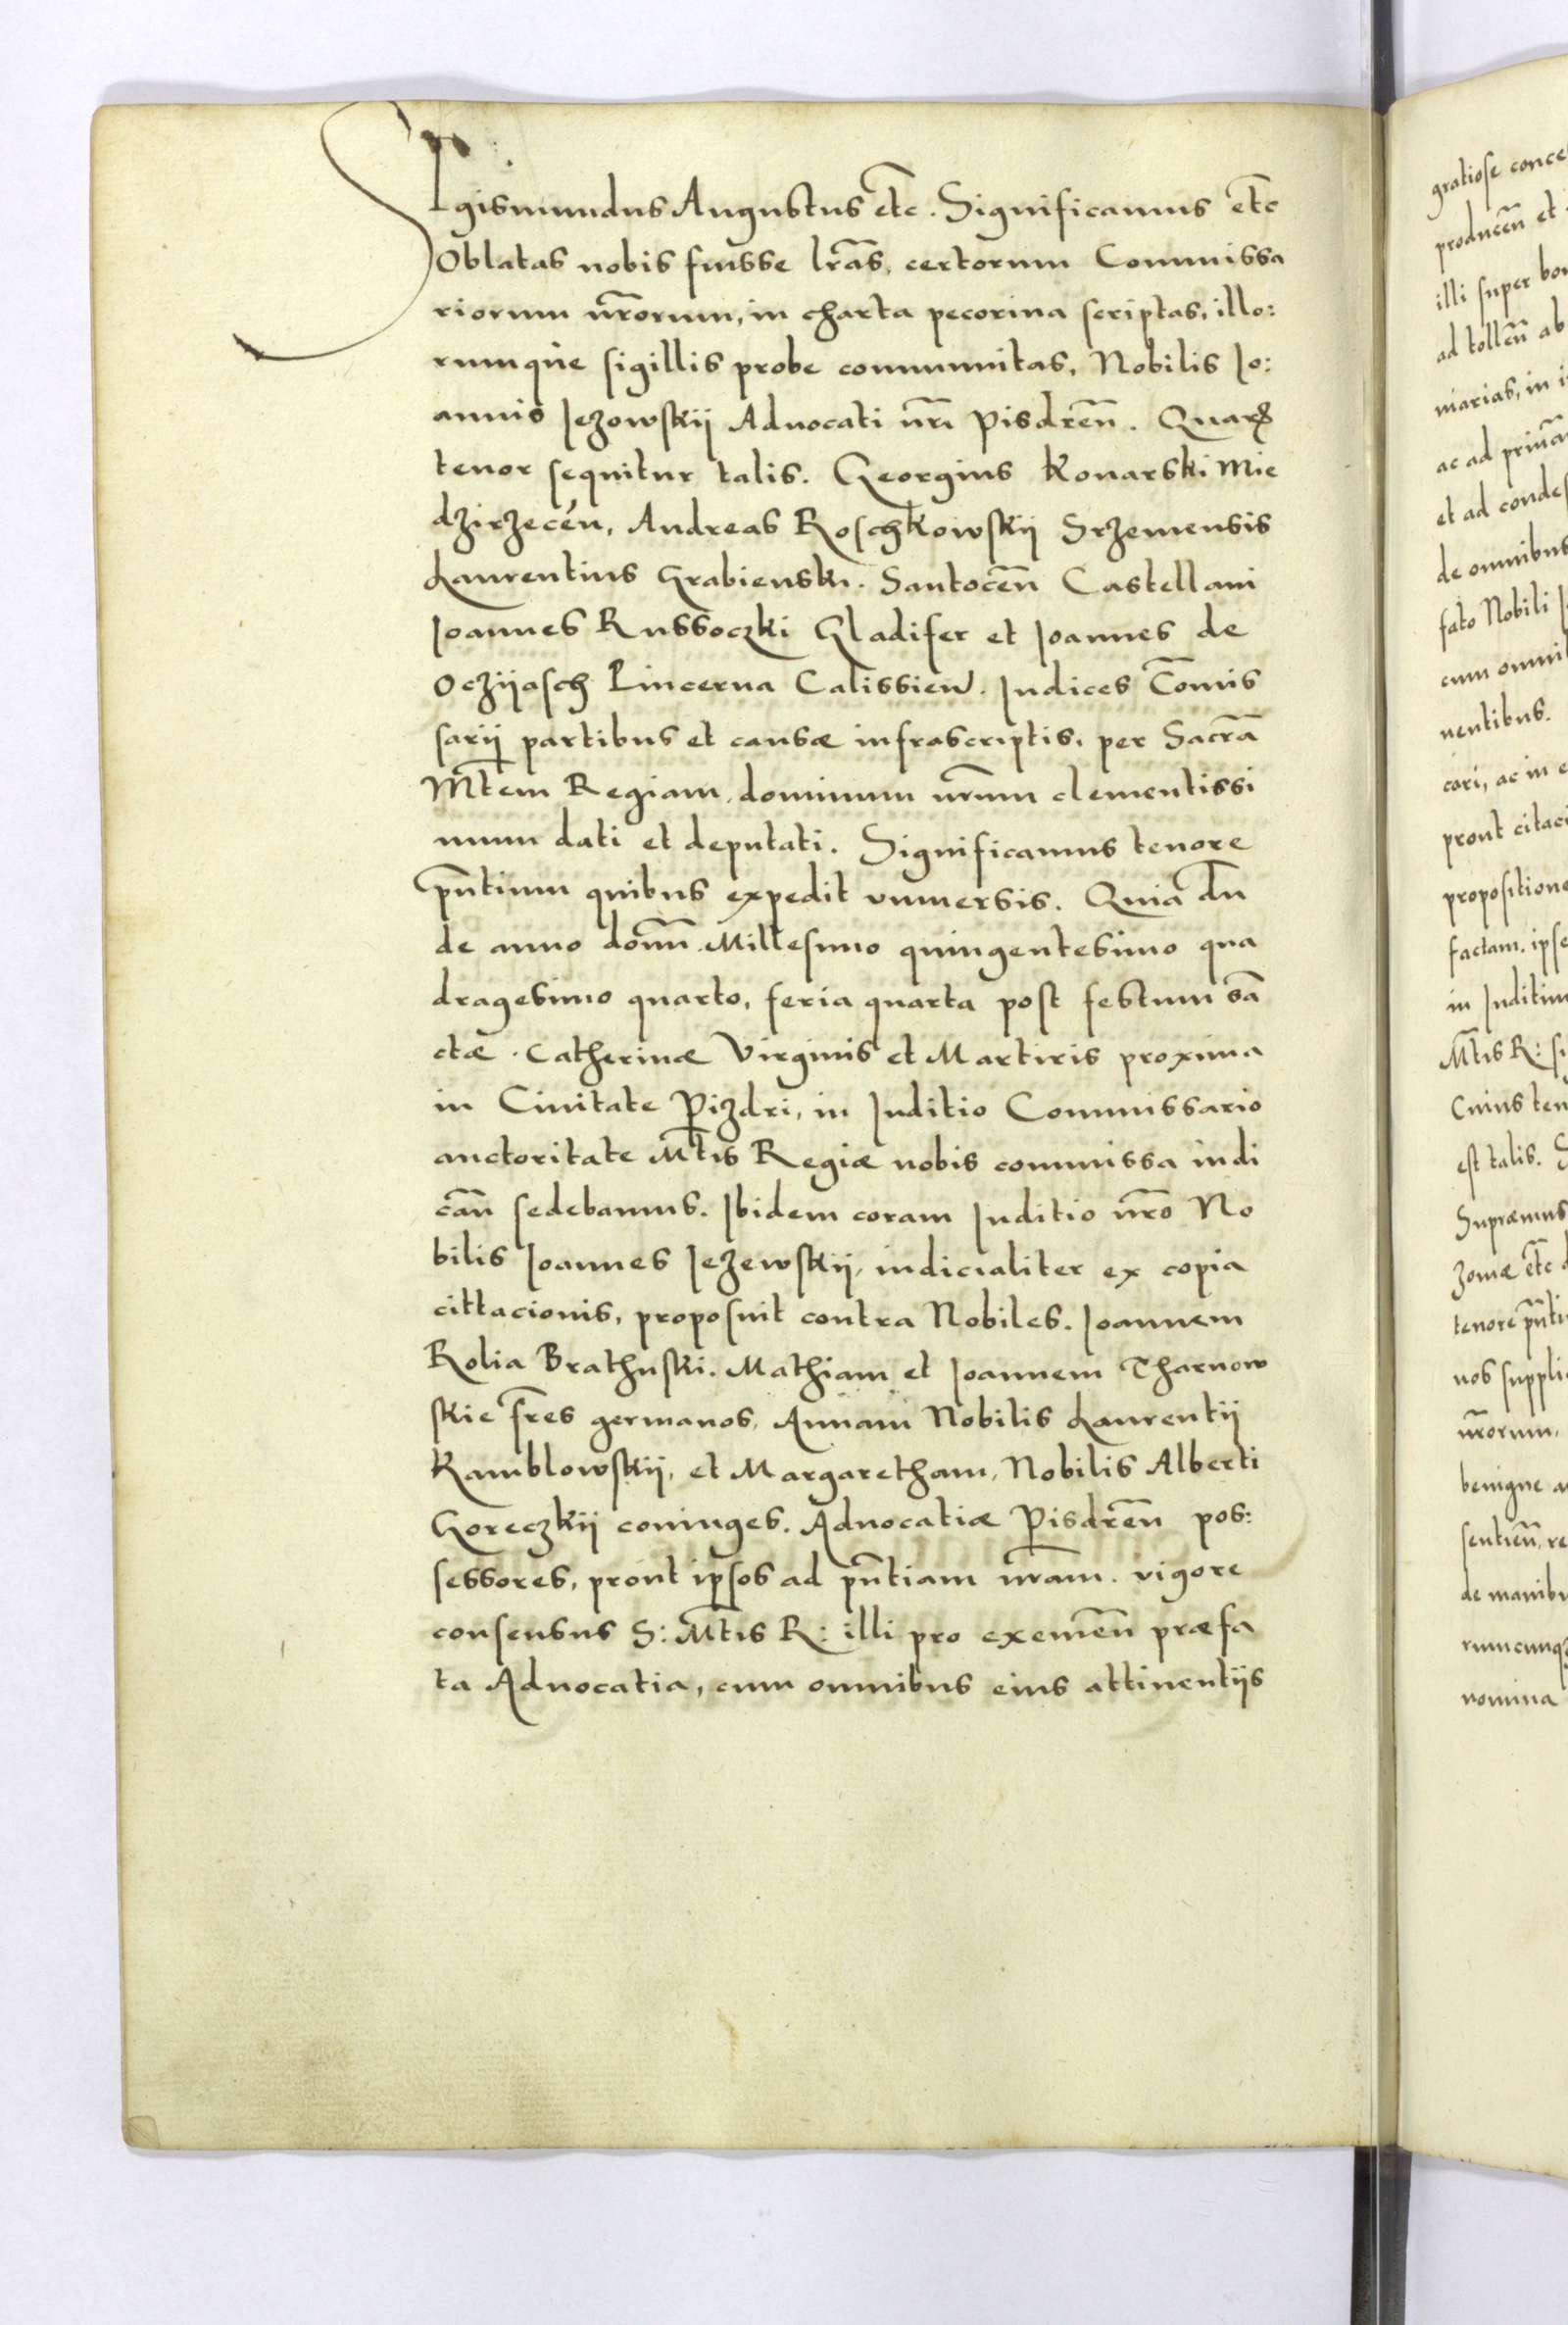 SIgismundus Augustus etc̄. Significamus etc̄
Oblatas nobis fuisse lr̄as, certorum Commissa
riorum nr̄orum, in charta pecorina scriptas, illo:
rumque sigillis probe communitas, Nobilis Io:
annis Jezowskij Aduocati nr̄i Pisdren̄. Quarꝝ
tenor sequitur talis. Georgius Konarski Mie
dzirzecén, Andreas Roschkowskij Srzemensis
Laurentius Grabienski. Santocen̄ Castellani
Joannes Russoczki Gladifer et Joannes de
Oczijasch Pincerna Calissien̄. Iudices Com̄is
sarij partibus et causæ infrascriptis, per Sacrā
Mt̄em Regiam, dominum nr̄um clementissi
mum dati et deputati. Significamus tenore
pn̄tium quibus expedit vniuersis. Quia dū
de anno domn̄. Millesimo quingentesimo qua
dragesimo quarto, feria quarta post festum sā
ctæ. Catherinæ Virginis et Martiris proxima
in Ciuitate Pizdri, in Iuditio Commissario
auctoritate Mt̄is Regiæ nobis commissa iudi
can̄ sedebamus. Ibidem coram Iuditio nr̄o No
bilis Joannes Jezewskij, iudicialiter ex copia
cittacionis, proposuit contra Nobiles. Joannem
Rolia Brathuski. Mathiam et Joannem Tharnow
skie fr̄es germanos, Annam Nobilis Laurentij
Kamblowskij, et Margaretham, Nobilis Alberti
Goreczkij coniuges. Aduocatiæ Pisdren̄ pos:
sessores, prout ipsos ad pn̄tiam nr̄am. vigore
consensus S: Mt̄is R: illi pro exemen̄ præfa
ta Aduocatia, cum omnibus eius attinentijs
gratiose conce
producen̄ et
illi super bon
ad tollen̄ ab
niarias, in i
ac ad priuā
et ad condes
de omnibus
fato Nobili J
cum omnib
nentibus.
cori, ac in e
prout citaci
propositione
factam. ipse
in Iuditiu
Mt̄is R: si
Cuius ten
est talis. S
Supræmus
zoniæ etc̄ d
tenore pn̄ti
nos supplic
nr̄orum,
benigne a
sentien̄, re
de manibu
rumcunq
nomina